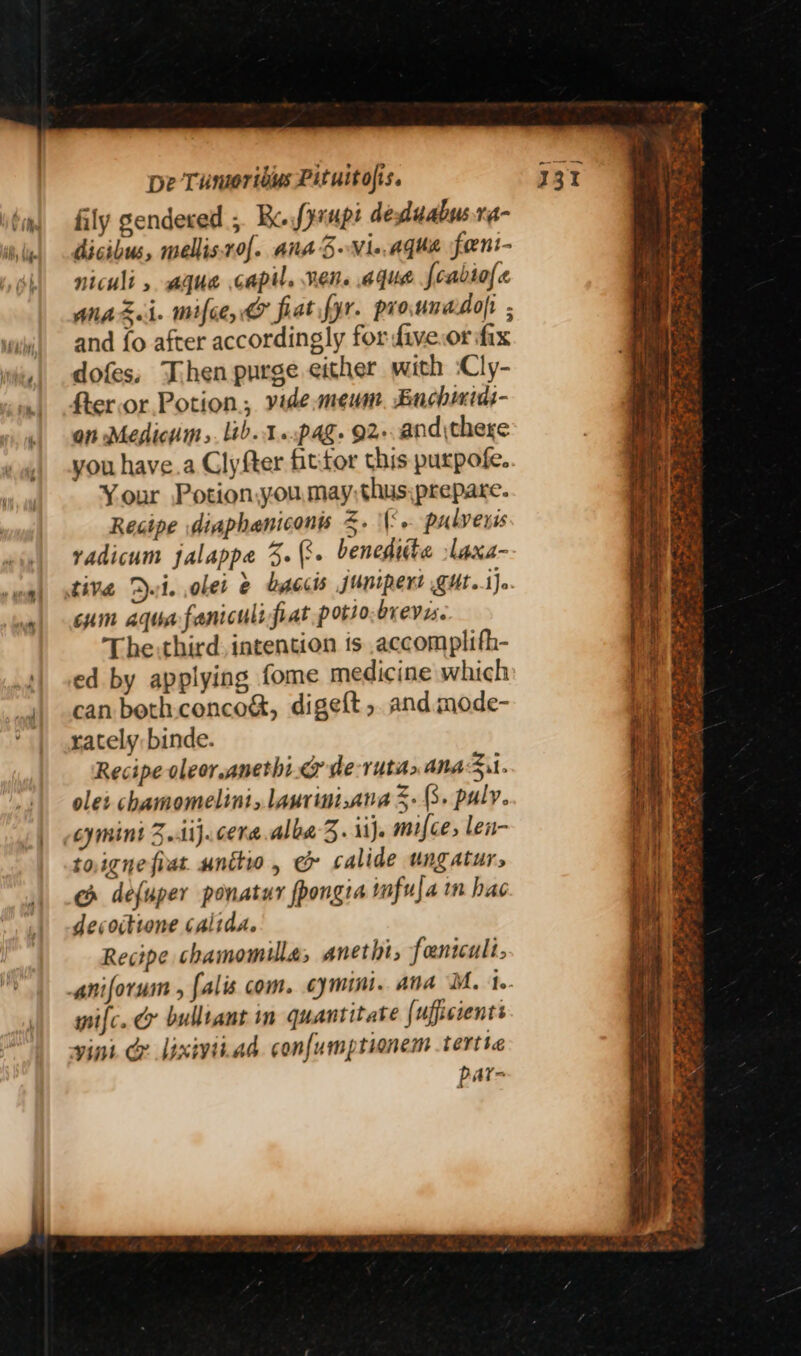 De Tumoribus Pituitosis. 131
ſily gendered ; ℞. ſyrupi de duabus ra-
dicibus, mellis roſ. ana ʒ. vi. aquæ fœni-
niculi, aquæ capil. ven. aquæ ſcabioſæ
ana ℥. i. miſce, & fiat ſyr. pro una doſi ;
and ſo after accordingly for five or ſix
doſes. Then purge either with Cly-
ſter or Potion; vide meum Enchiridi-
on Medicum, lib. 1. pag. 92. and there
you have a Clyſter fit for this purpoſe.
Your Potion you may thus prepare.
Recipe diaphœniconis ℥. ſ. pulveris
radicum jalappæ ʒ. ß. benedictæ laxa-
tivæ ℈. i. olei è baccis juniperi gut. ij.
cum aqua fœniculi fiat potio brevis.
The third intention is accompliſh-
ed by applying ſome medicine which
can both concoct, digeſt, and mode-
rately binde.
Recipe oleor. anethi & de ruta, ana ℥i.
olei chamomelini, laurini, ana ℥. ß. pulv.
cymini ʒ. iij. ceræ albæ ʒ. iij. miſce, len-
to igne fiat unctio, & calide ungatur,
& deſuper ponatur ſpongia infuſa in hac
decoctione calida.
Recipe chamomillæ, anethi, fœniculi,
aniſorum, ſalis com. cymini. ana M. i.
miſc. & bulliant in quantitate ſufficienti
vini & lixivii ad conſumptionem tertiæ
par-